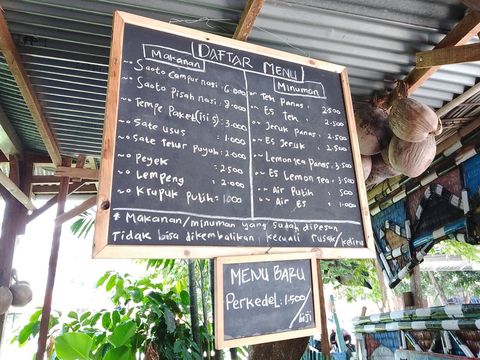 DAFTAR MENU
Makanan
~o Saoto campur nasi : 6.000
~o Saoto pisah nasi : 7.000
~o Tempe paket (isi 5) : 3.000
~o Sate usus : 1.000
~o Sate telur puyuh : 2.000
~o Peyek : 2.500
~o Lempeng : 2.000
~o Krupuk putih : 1000
Minuman
~o Teh panas : 2.500
~o Es Teh : 2.500
~o Jeruk panas : 2.500
~o Es Jeruk : 2.500
~o Lemon tea panas : 3.500
~o Es Lemon tea : 3.500
~o Air Putih : 500
~o Air Es : 1.000
* Makanan/minuman yang sudah dipesan
Tidak bisa dikembalikan, kecuali rusak/keliru
MENU BARU
Perkedel : 1.500
/biji